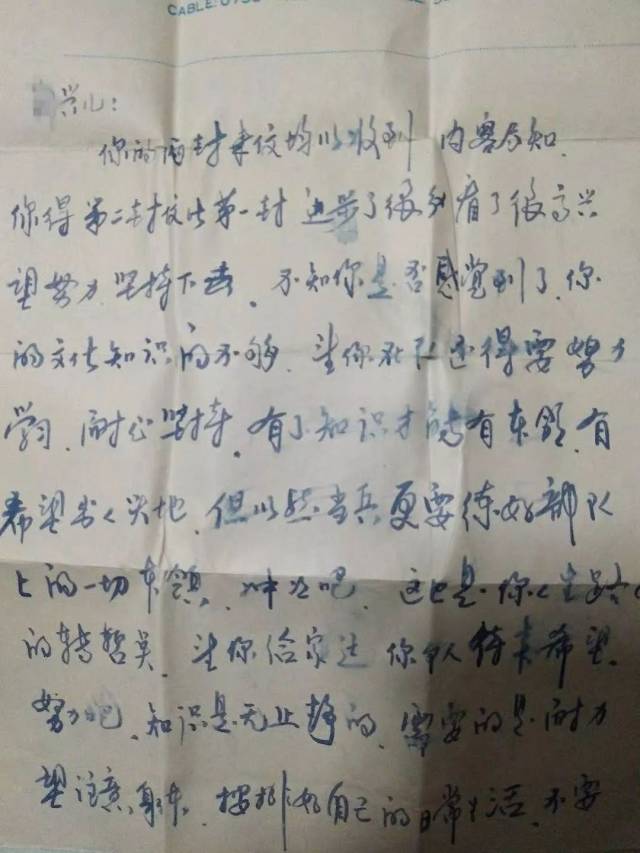 CABLE: 0756
兴儿：
你的两封来信均以收到 内容尽知.
你得第二封较比第一封 进步了很多 看了很高兴
望努力 坚持下去. 不知你是否感觉到了, 你
的文化知识的不够. 望你在下 还得要努力
学习. 耐心坚持. 有了知识才能有本领, 有
希望 天地. 但以然当兵更要练好部队
上的一切本领. 冲刺吧. 这也是你人生路
的转哲点. 望你给家 带来希望.
努力吧. 知识是无止静的, 需要的是耐力
望注意身体. 按排好自己的日常生活. 不要